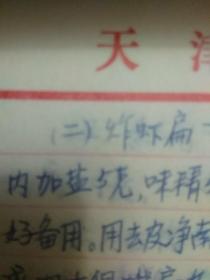 天 津
(二)炸虾扁
内加盐5克,味精
好备用。用去皮净南